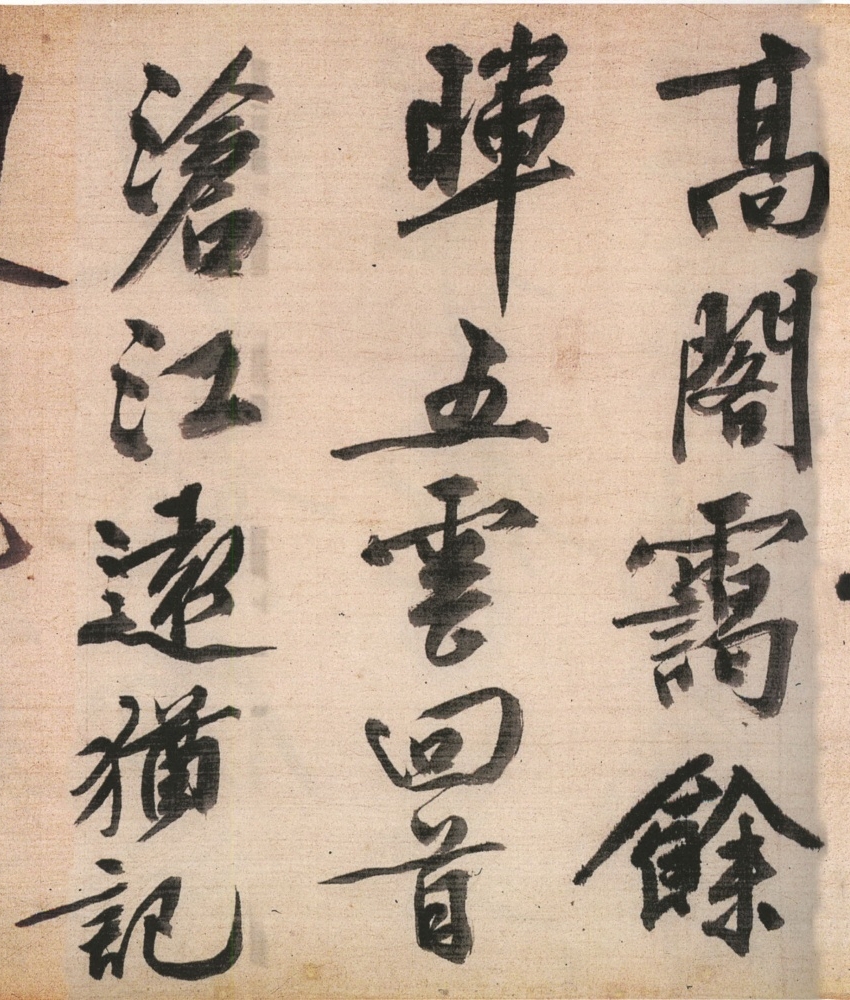 高閣靄餘
暉五雲回首
滄江遠猶記